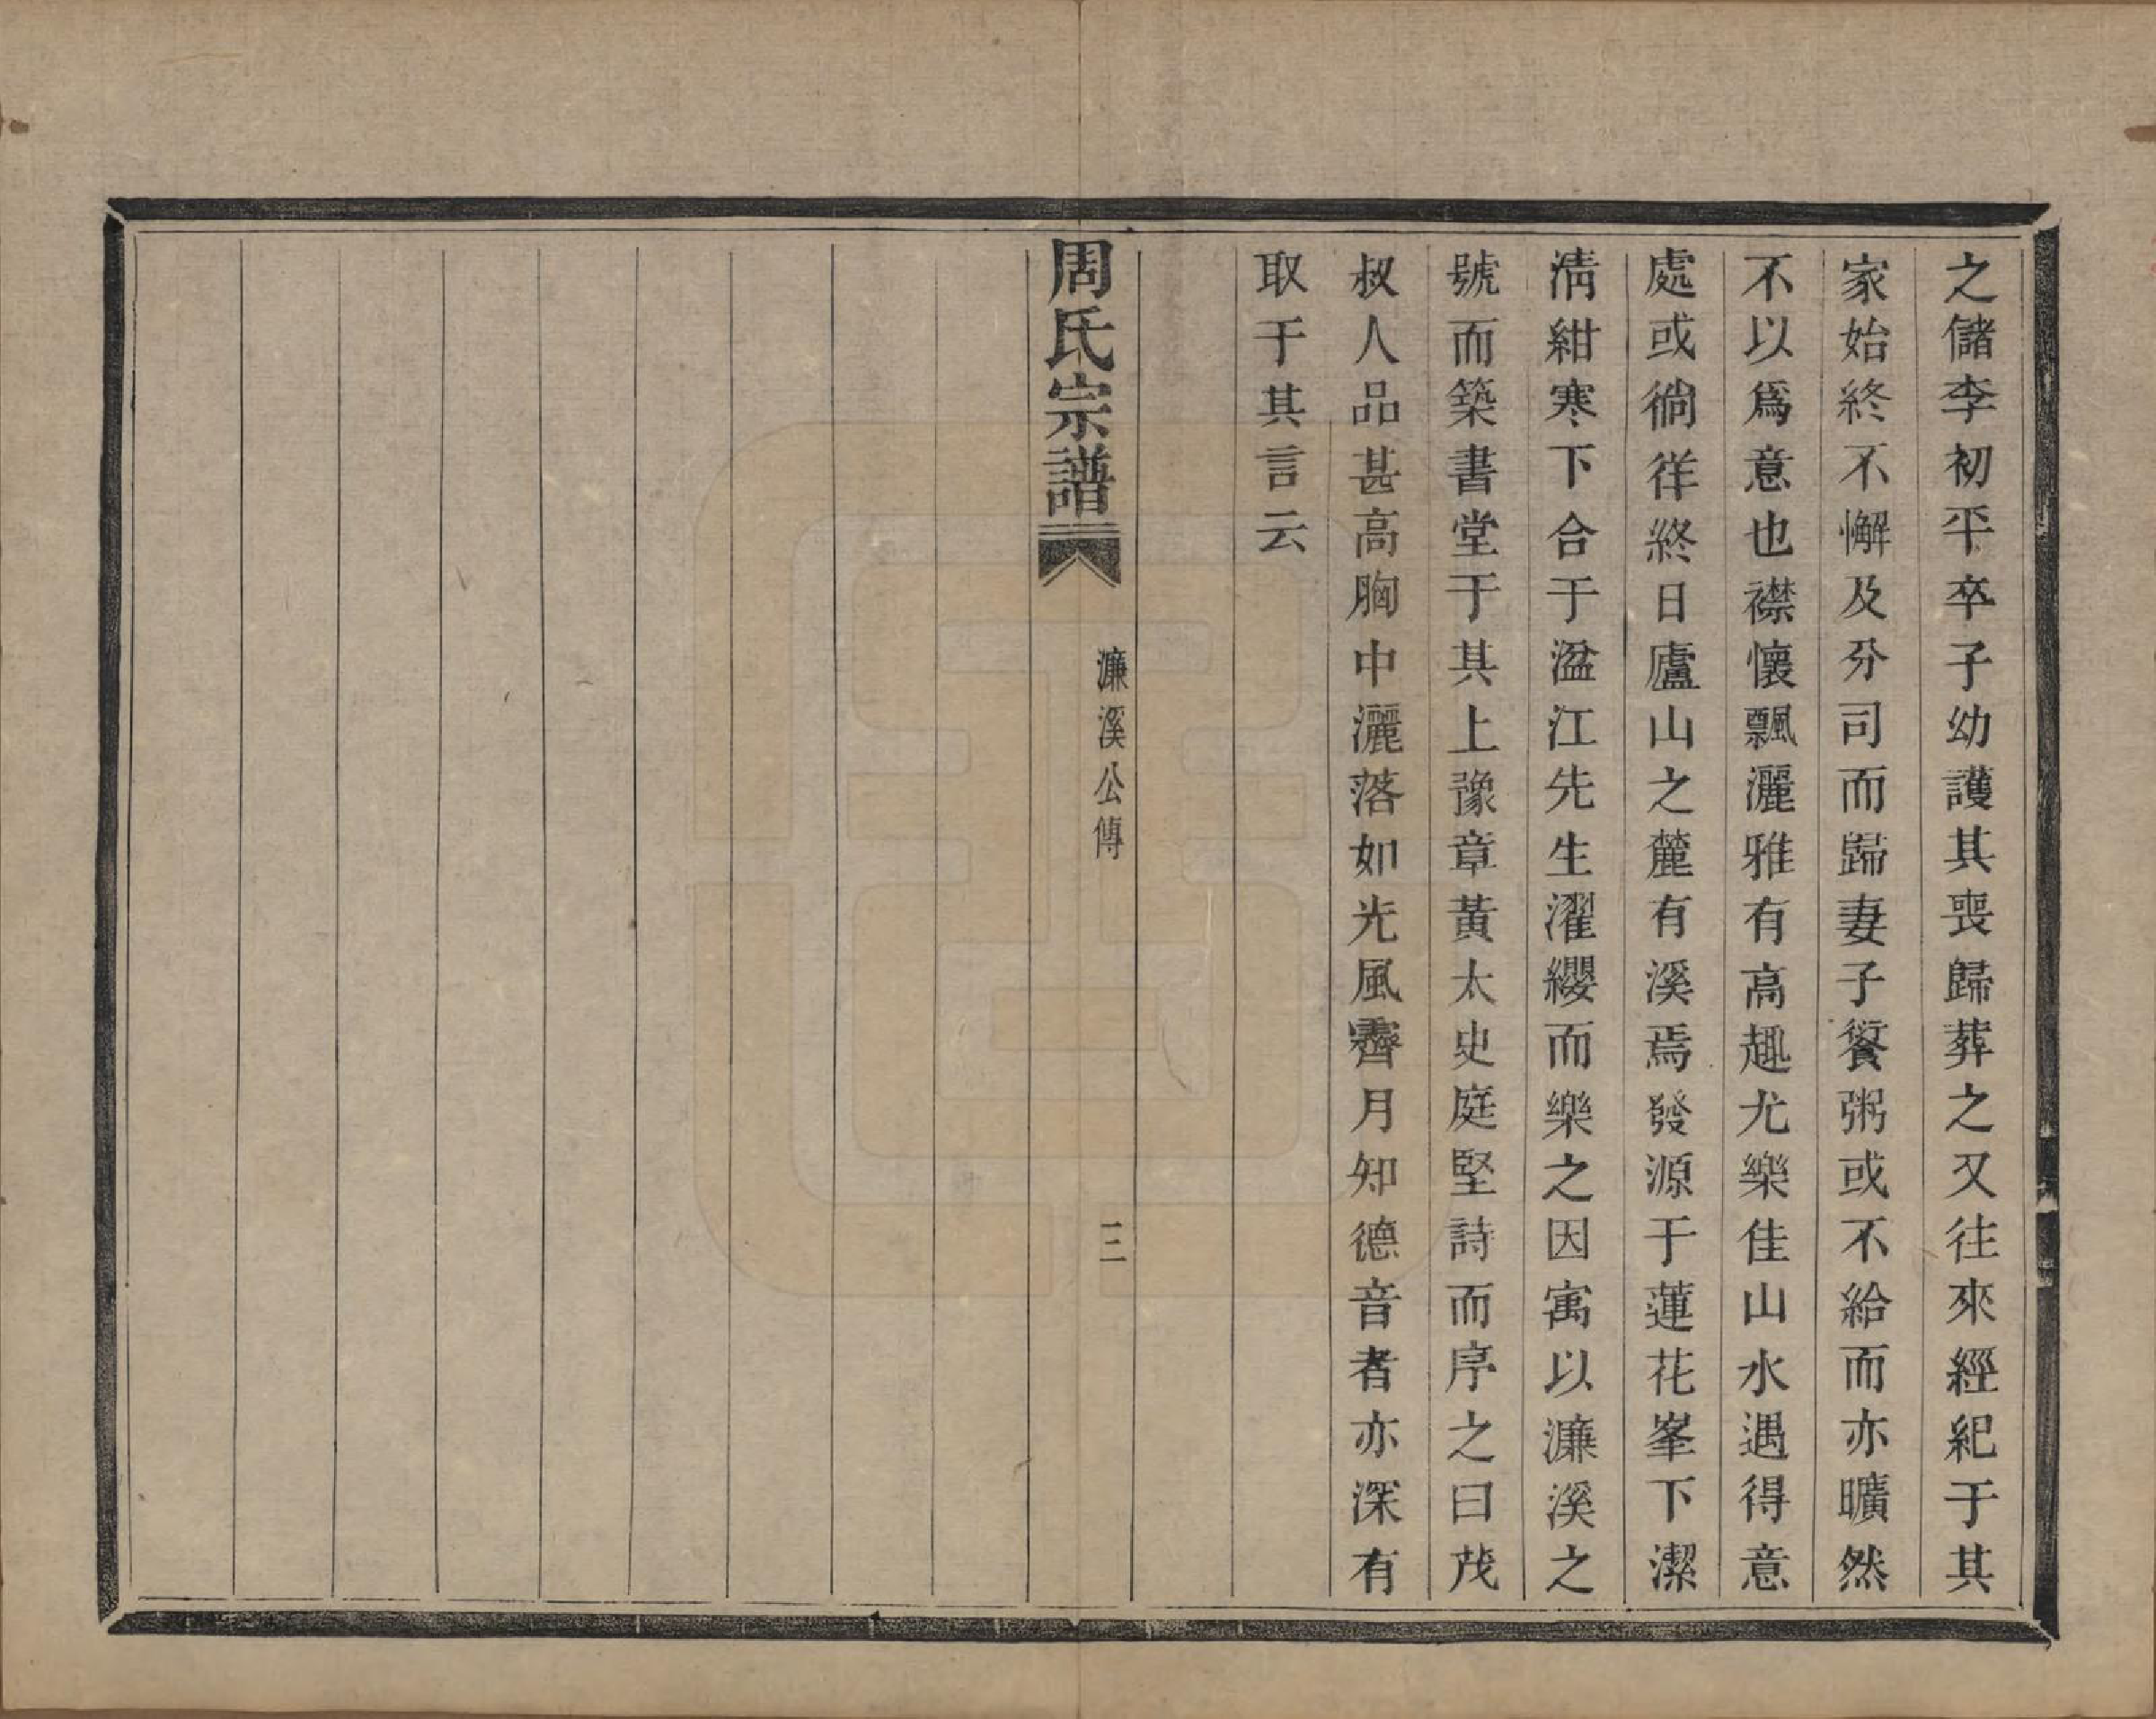 之儲李初平卒子幼護其喪歸葬之又往來經紀于其
家始終不懈及分司而歸妻子餐粥或不給而亦曠然
不以爲意也襟懷飄灑雅有高趣尤樂佳山水遇得意
處或徜徉終日廬山之麓有溪焉發源于蓮花峯下潔
清紺寒下合于湓江先生濯纓而樂之因寓以濂溪之
號而築書堂于其上豫章黃太史庭堅詩而序之曰茂
叔人品甚高胸中灑落如光風霽月知德音者亦深有
取于其言云
周氏宗譜
濂溪公傳
三